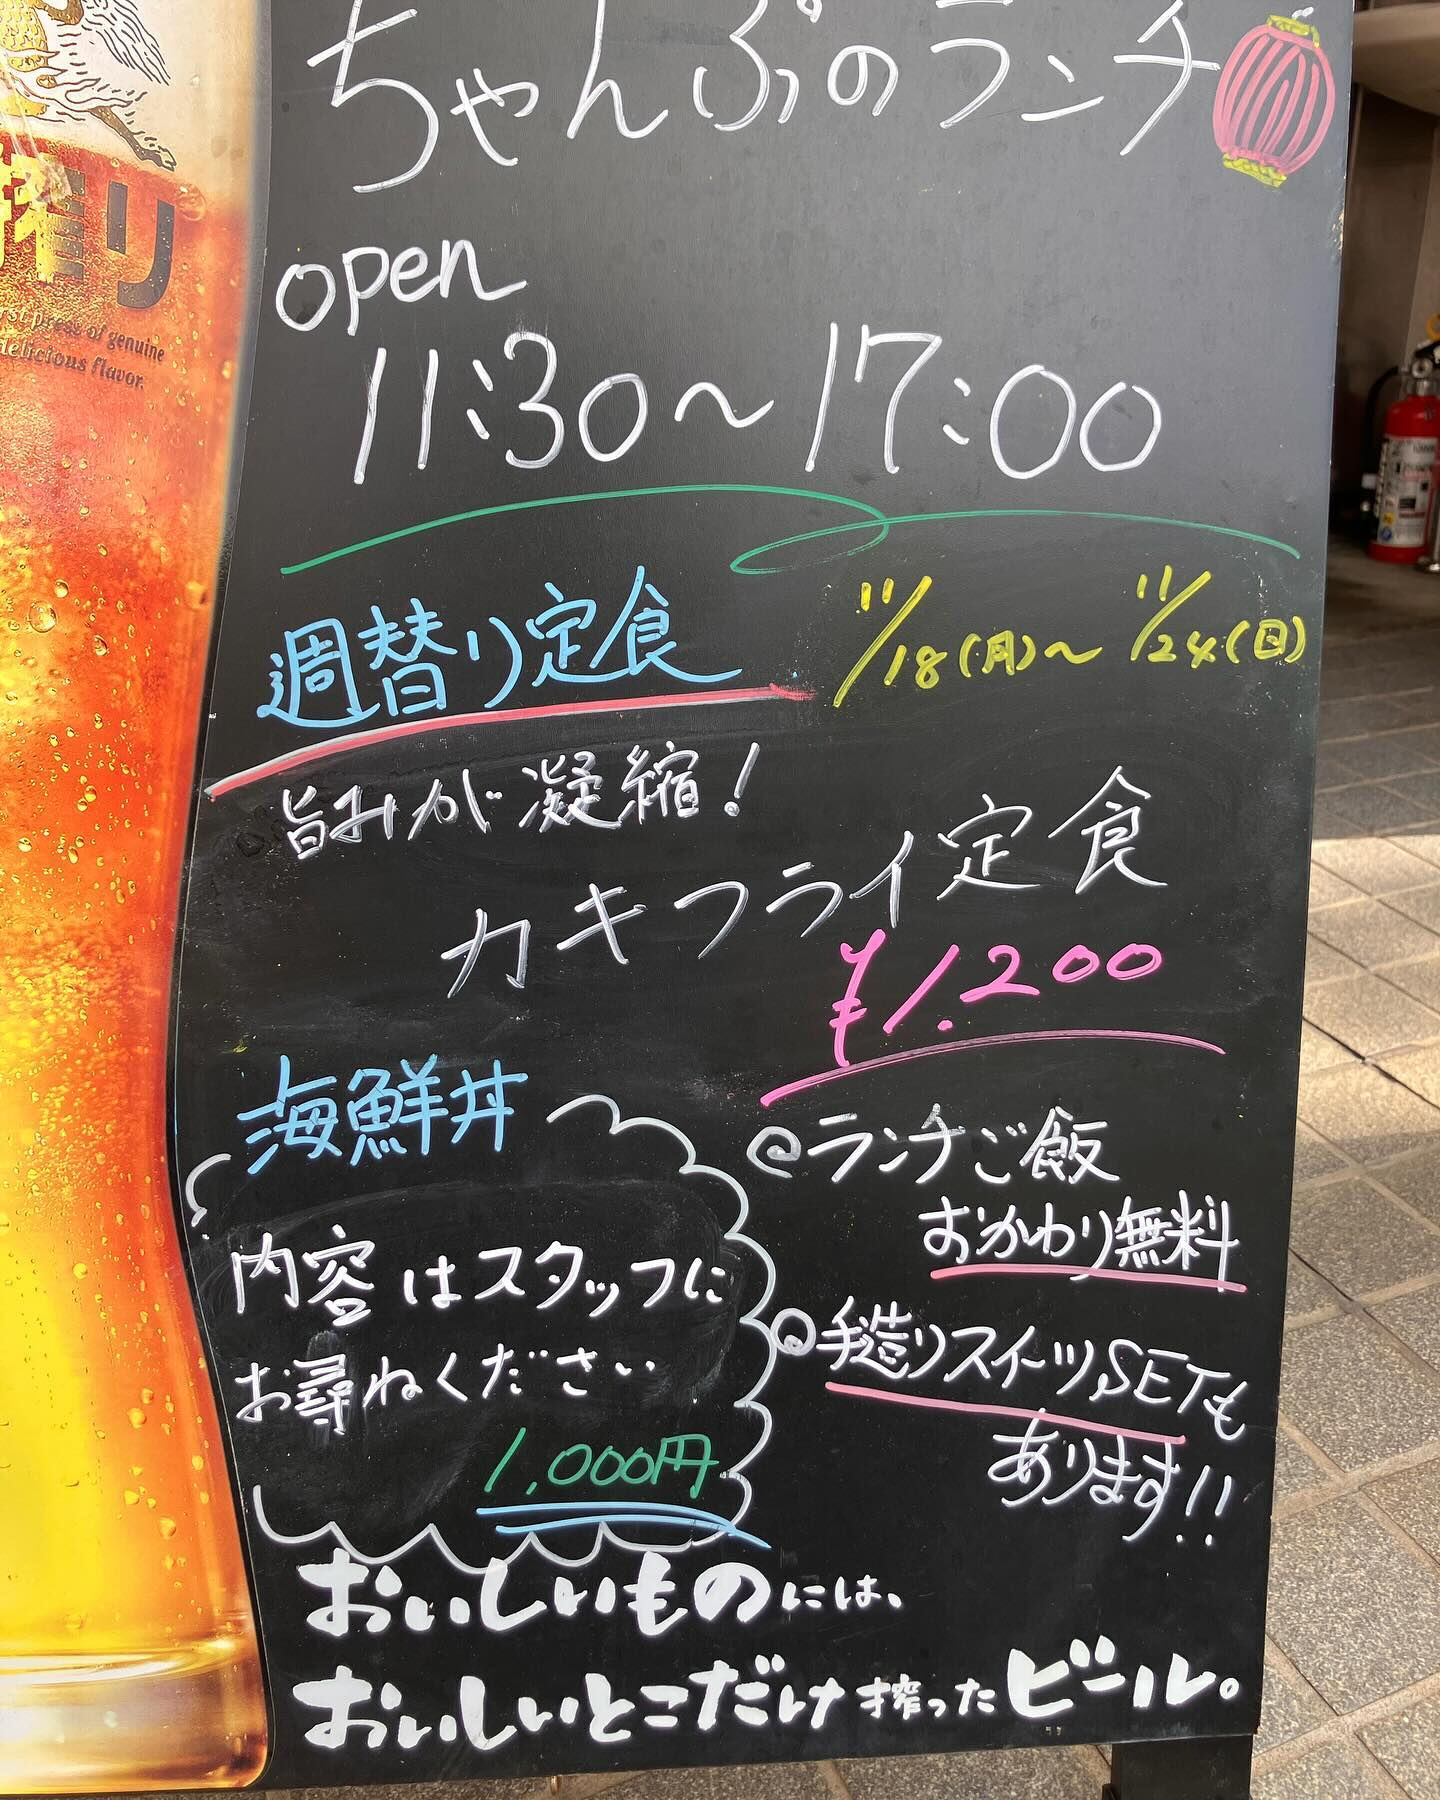 ちゃんぷのランチ
open
11:30〜17:00
週替り定食 11/18(月)〜11/24(日)
旨みが凝縮!
カキフライ定食
¥1.200
海鮮丼
内容はスタッフに
お尋ねください
1,000円
ランチご飯
おかわり無料
手造りスイーツSETも
あります!!
おいしいものには、
おいしいとこだけ搾ったビール。
搾り
press of genuine
delicious flavor.